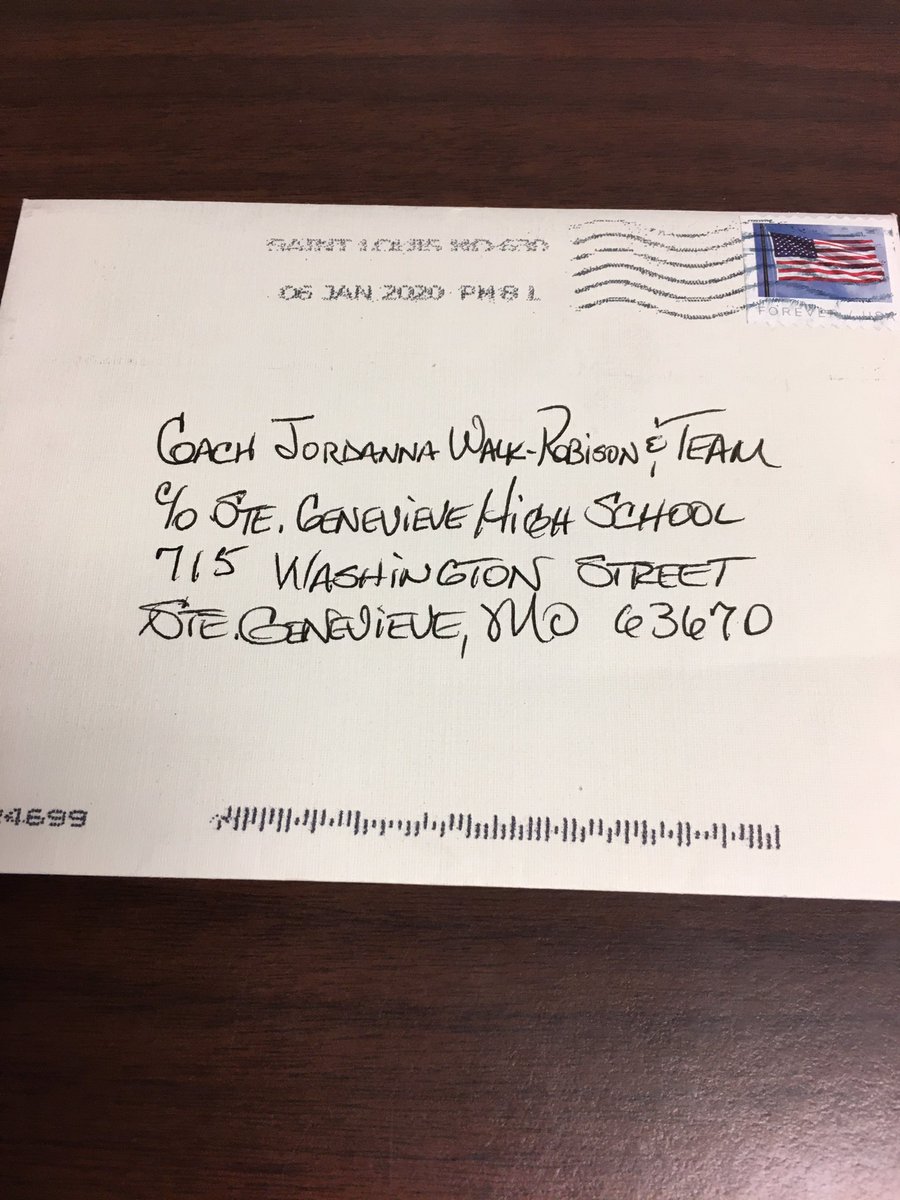 SAINT LOUIS MO 630
06 JAN 2020 PM 8 L
FOREVER / USA
COACH JORDANNA WALK-ROBISON & TEAM
c/o STE. GENEVIEVE HIGH SCHOOL
715 WASHINGTON STREET
STE. GENEVIEVE, MO 63670
4699